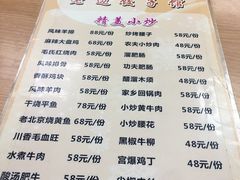 精美小炒
风味羊排 88元/份
麻辣大盘鸡 68元/份
毛氏红烧肉 58元/份
风味排骨
香酥鸡块
风味羊肉
干烧平鱼
老北京烧黄鱼 68元/份
川香毛血旺 58元/份
水煮牛肉 58元/份
酸汤肥牛 58元/份
炒烤腰子 58元/份
农夫小炒肉 48元/份
溜肥肠 58元/份
功夫肥肠 58元/份
醋溜木须 48元/份
家乡回锅肉 58元/份
小炒黄牛肉 58元/份
小炒腰花 58元/份
黑椒牛柳 58元/份
宫爆鸡丁 48元/份
58元/份